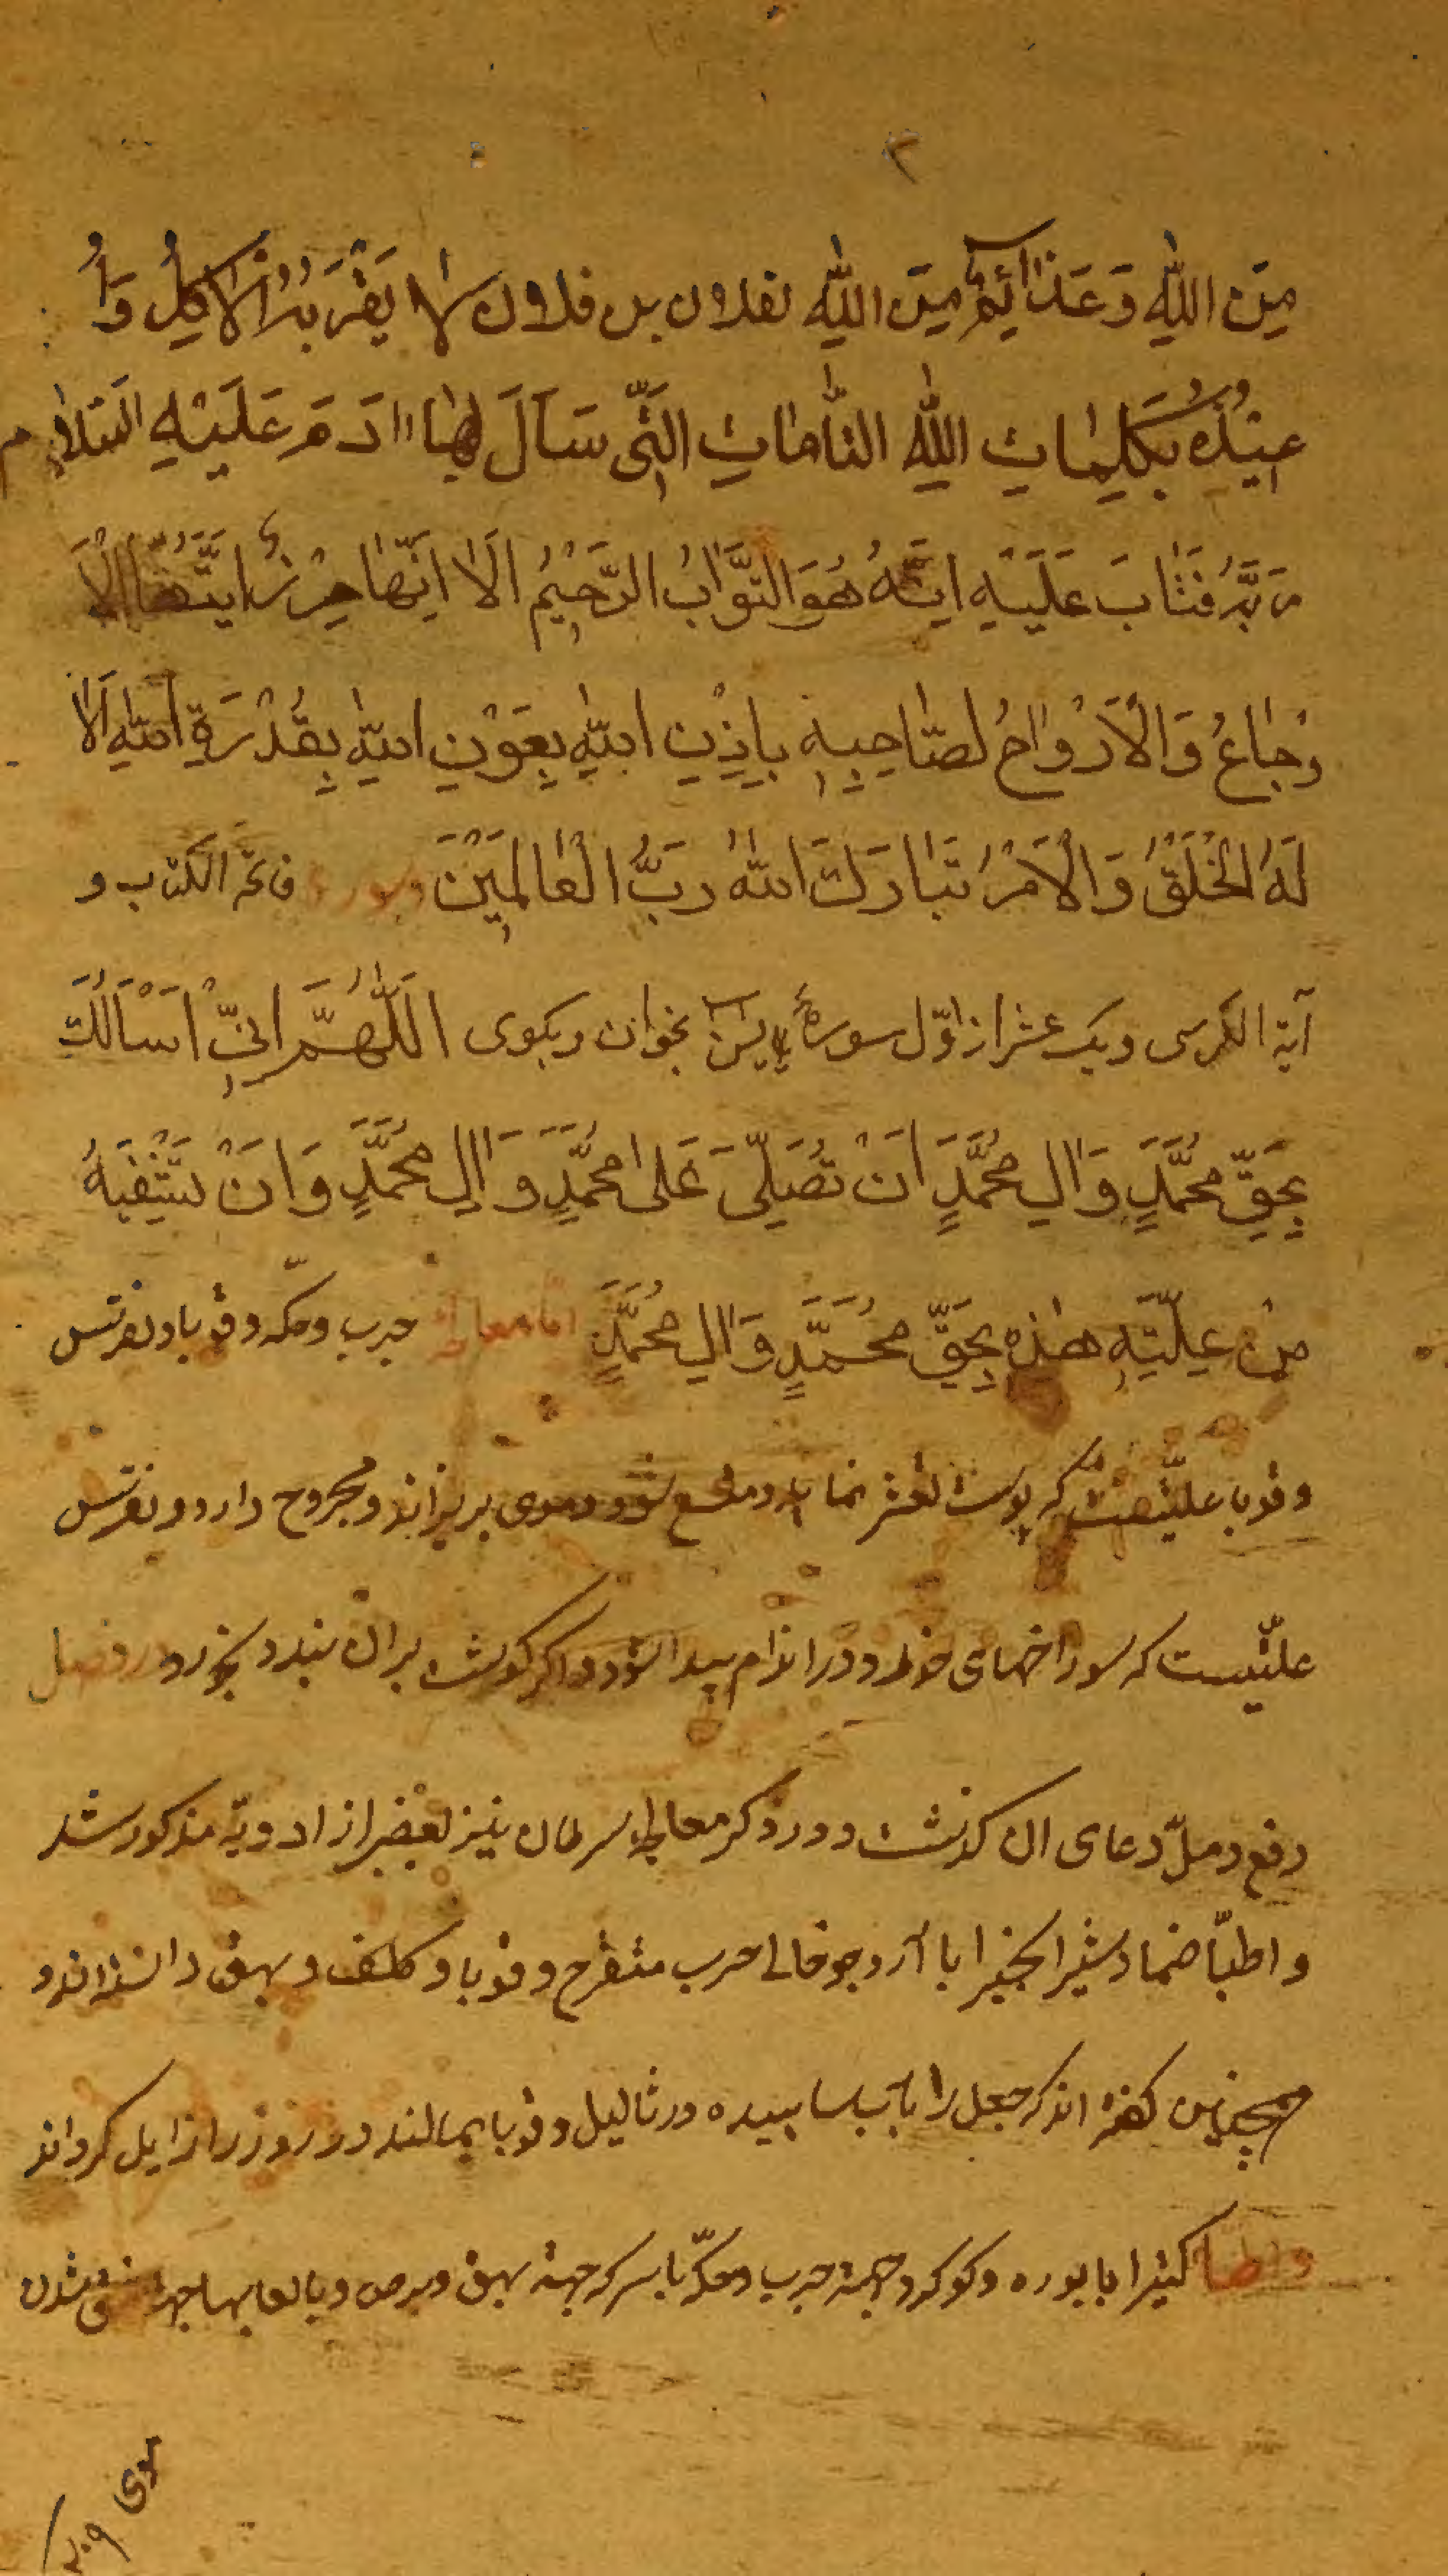 ٢
مِنَ اللّٰهِ وَعَزَائِمُ مِنَ اللّٰهِ لفلان بن فلان لَا يَقْرَبُهُ الْاٰكِلُ وَاُ
عِيْذُهُ بِكَلِمَاتِ اللّٰهِ التَّامَّاتِ الَّتِى سَأَلَ بِهَا اٰدَمَ عَلَيْهِ السَّلَامُ
رَبَّهُ فَتَابَ عَلَيْهِ اِنَّهُ هُوَ التَّوَّابُ الرَّحِيْمُ اَلَا اِنَّهَا حِرْزٌ اَيَّتُهَا الْاَ
وْجَاعُ وَالْاَرْوَاحُ لِصَاحِبِهِ بِاِذْنِ اللّٰهِ بِعَوْنِ اللّٰهِ بِقُدْرَةِ اللّٰهِ اَلَا
لَهُ الْخَلْقُ وَالْاَمْرُ تَبَارَكَ اللّٰهُ رَبُّ الْعَالَمِيْنَ وسوره فاتحة الكتاب و
آية الكرسى ويك عشر از اوّل سورهٔ يٰسٓ بخوان وبكوى اَللّٰهُمَّ اِنِّىْ اَسْاَلُكَ
بِحَقِّ مُحَمَّدٍ وَاٰلِ مُحَمَّدٍ اَنْ تُصَلِّىَ عَلٰى مُحَمَّدٍ وَاٰلِ مُحَمَّدٍ وَاَنْ تَشْفِيَهُ
مِنْ عِلَّتِهِ هٰذِهِ بِحَقِّ مُحَمَّدٍ وَاٰلِ مُحَمَّدٍ امّا معالجه جرب وحكّه وقوبا ونقرس
وقوبا علّتيست كه پوست نمايد و شود وموى بريزاند ومجروح دارد ونقرس
علّتيست كه سوراخهاى خورد در اندام پيدا شود واكر كوشت بران بندد بخورد در فصل
دفع دمل دعاى ان كذشت ودر ذكر معالجه سرطان نيز بعضى از ادويّه مذكور شد
واطبّا ضماد شير انجير را با آرد جو جرب متقرح وقوبا وكلف وبهق دانسته‌اند و
همچنين كفته‌اند كه جعل را باب ساييده در ثاليل وقوبا بمالند در روز زايل كرداند
وايضا كتيرا با بوره وكوكرد جهة جرب وحكّه با سركه جهة بهق وبرص وبا لعابها جهة شدن